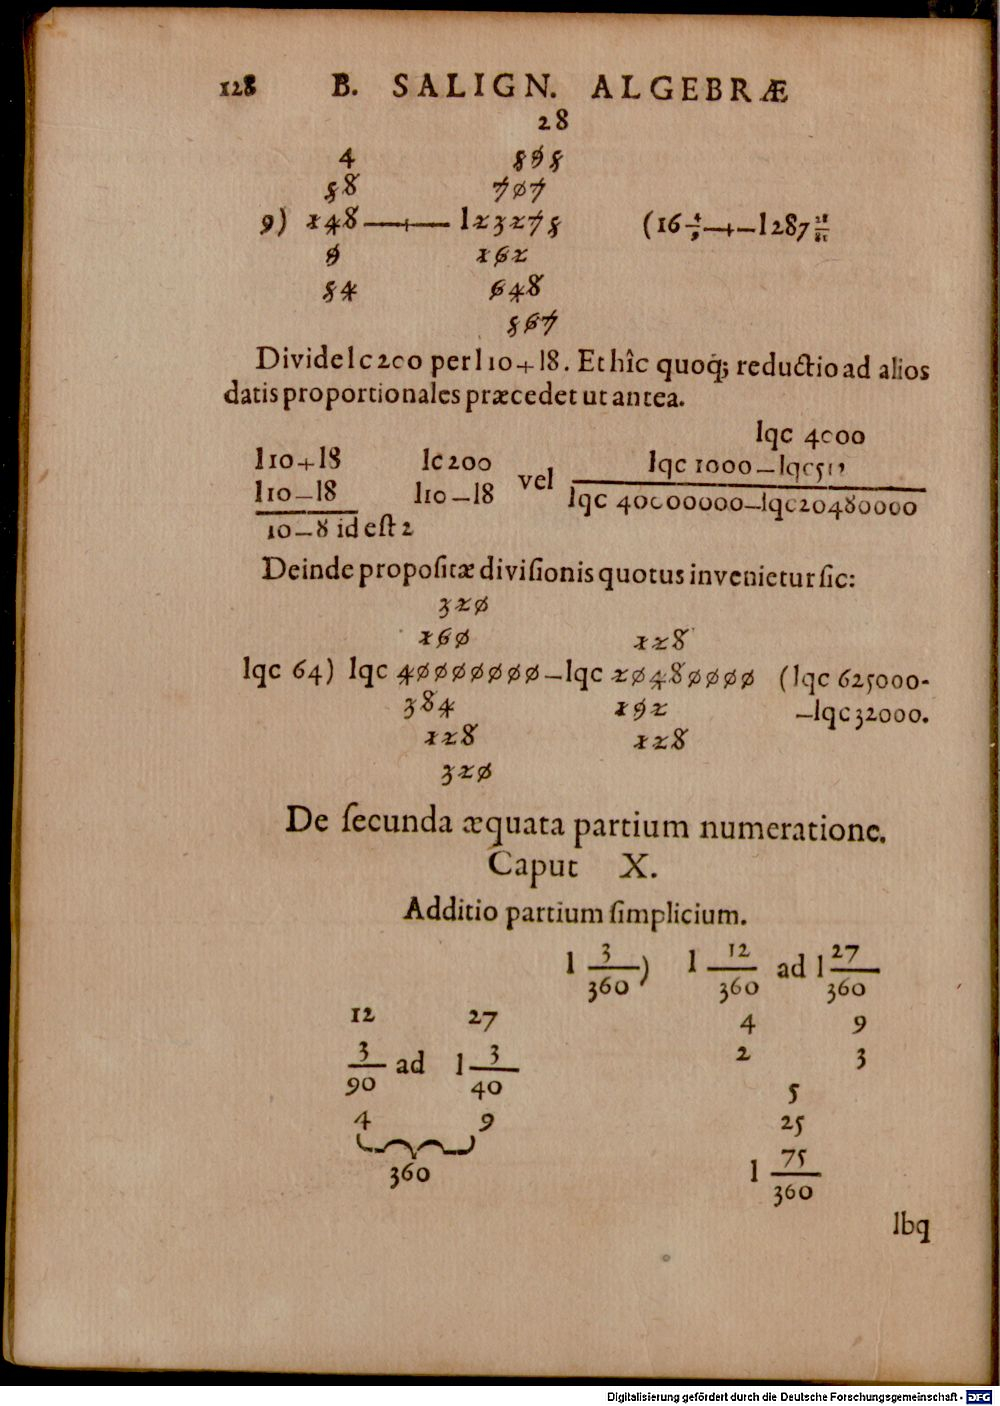 128 B. SALIGN. ALGEBRÆ
28
4 898
58 707
9) 148—+—l23275 (16 4/9—+—l287 28/81
9 162
54 648
567
Divide lc200 per l10+l8. Et hîc quoq; reductio ad alios
datis proportionales præcedet ut antea.
lqc 4000
l10+l8 lc200 vel lqc 1000—lqc512
l10—l8 l10—l8 lqc 40000000—lqc20480000
10—8 id est 2
Deinde propositæ divisionis quotus invenietur sic:
320
160 128
lqc 64) lqc 40000000—lqc 20480000 (lqc 625000-
384 192 —lqc32000.
128 128
320
De secunda æquata partium numeratione.
Caput X.
Additio partium simplicium.
l 3/360) l 12/360 ad l 27/360
12 27 4 9
3/90 ad l 3/40 2 3
5
4 9 25
360 l 75/360
lbq
Digitalisierung gefördert durch die Deutsche Forschungsgemeinschaft - DFG